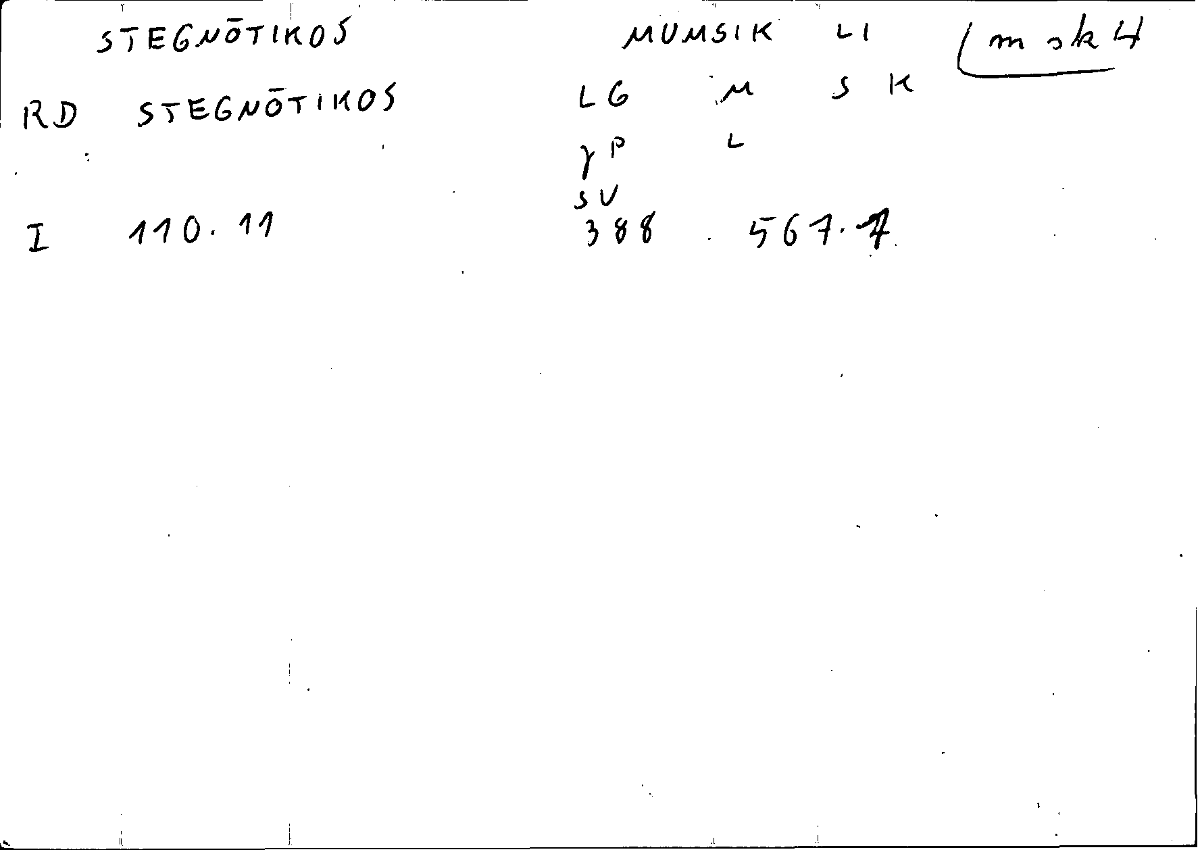 STEGNŌTIKOS MUMSIK LI msk4
RD STEGNŌTIKOS LG M S K
γP L
SV
I 110.11 388 567.7